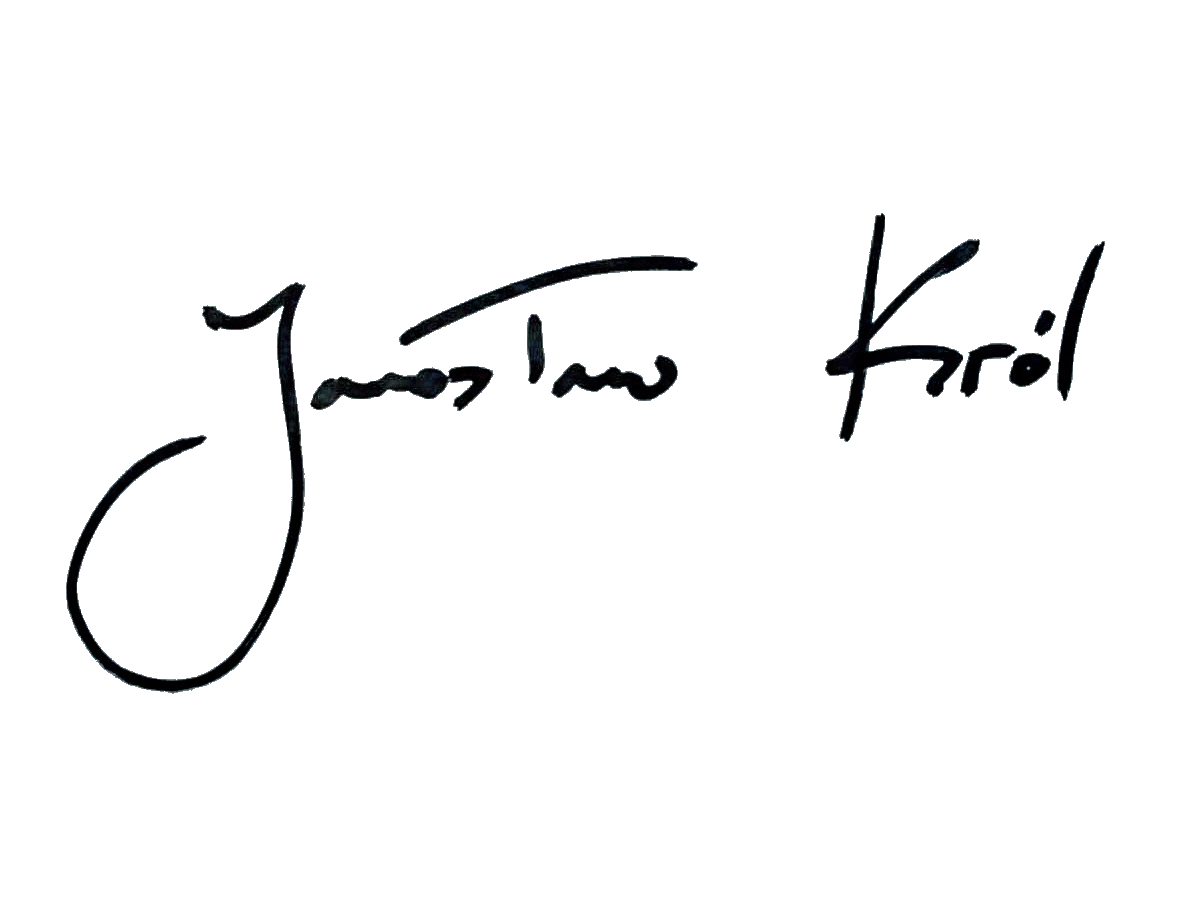 Jarosław Król